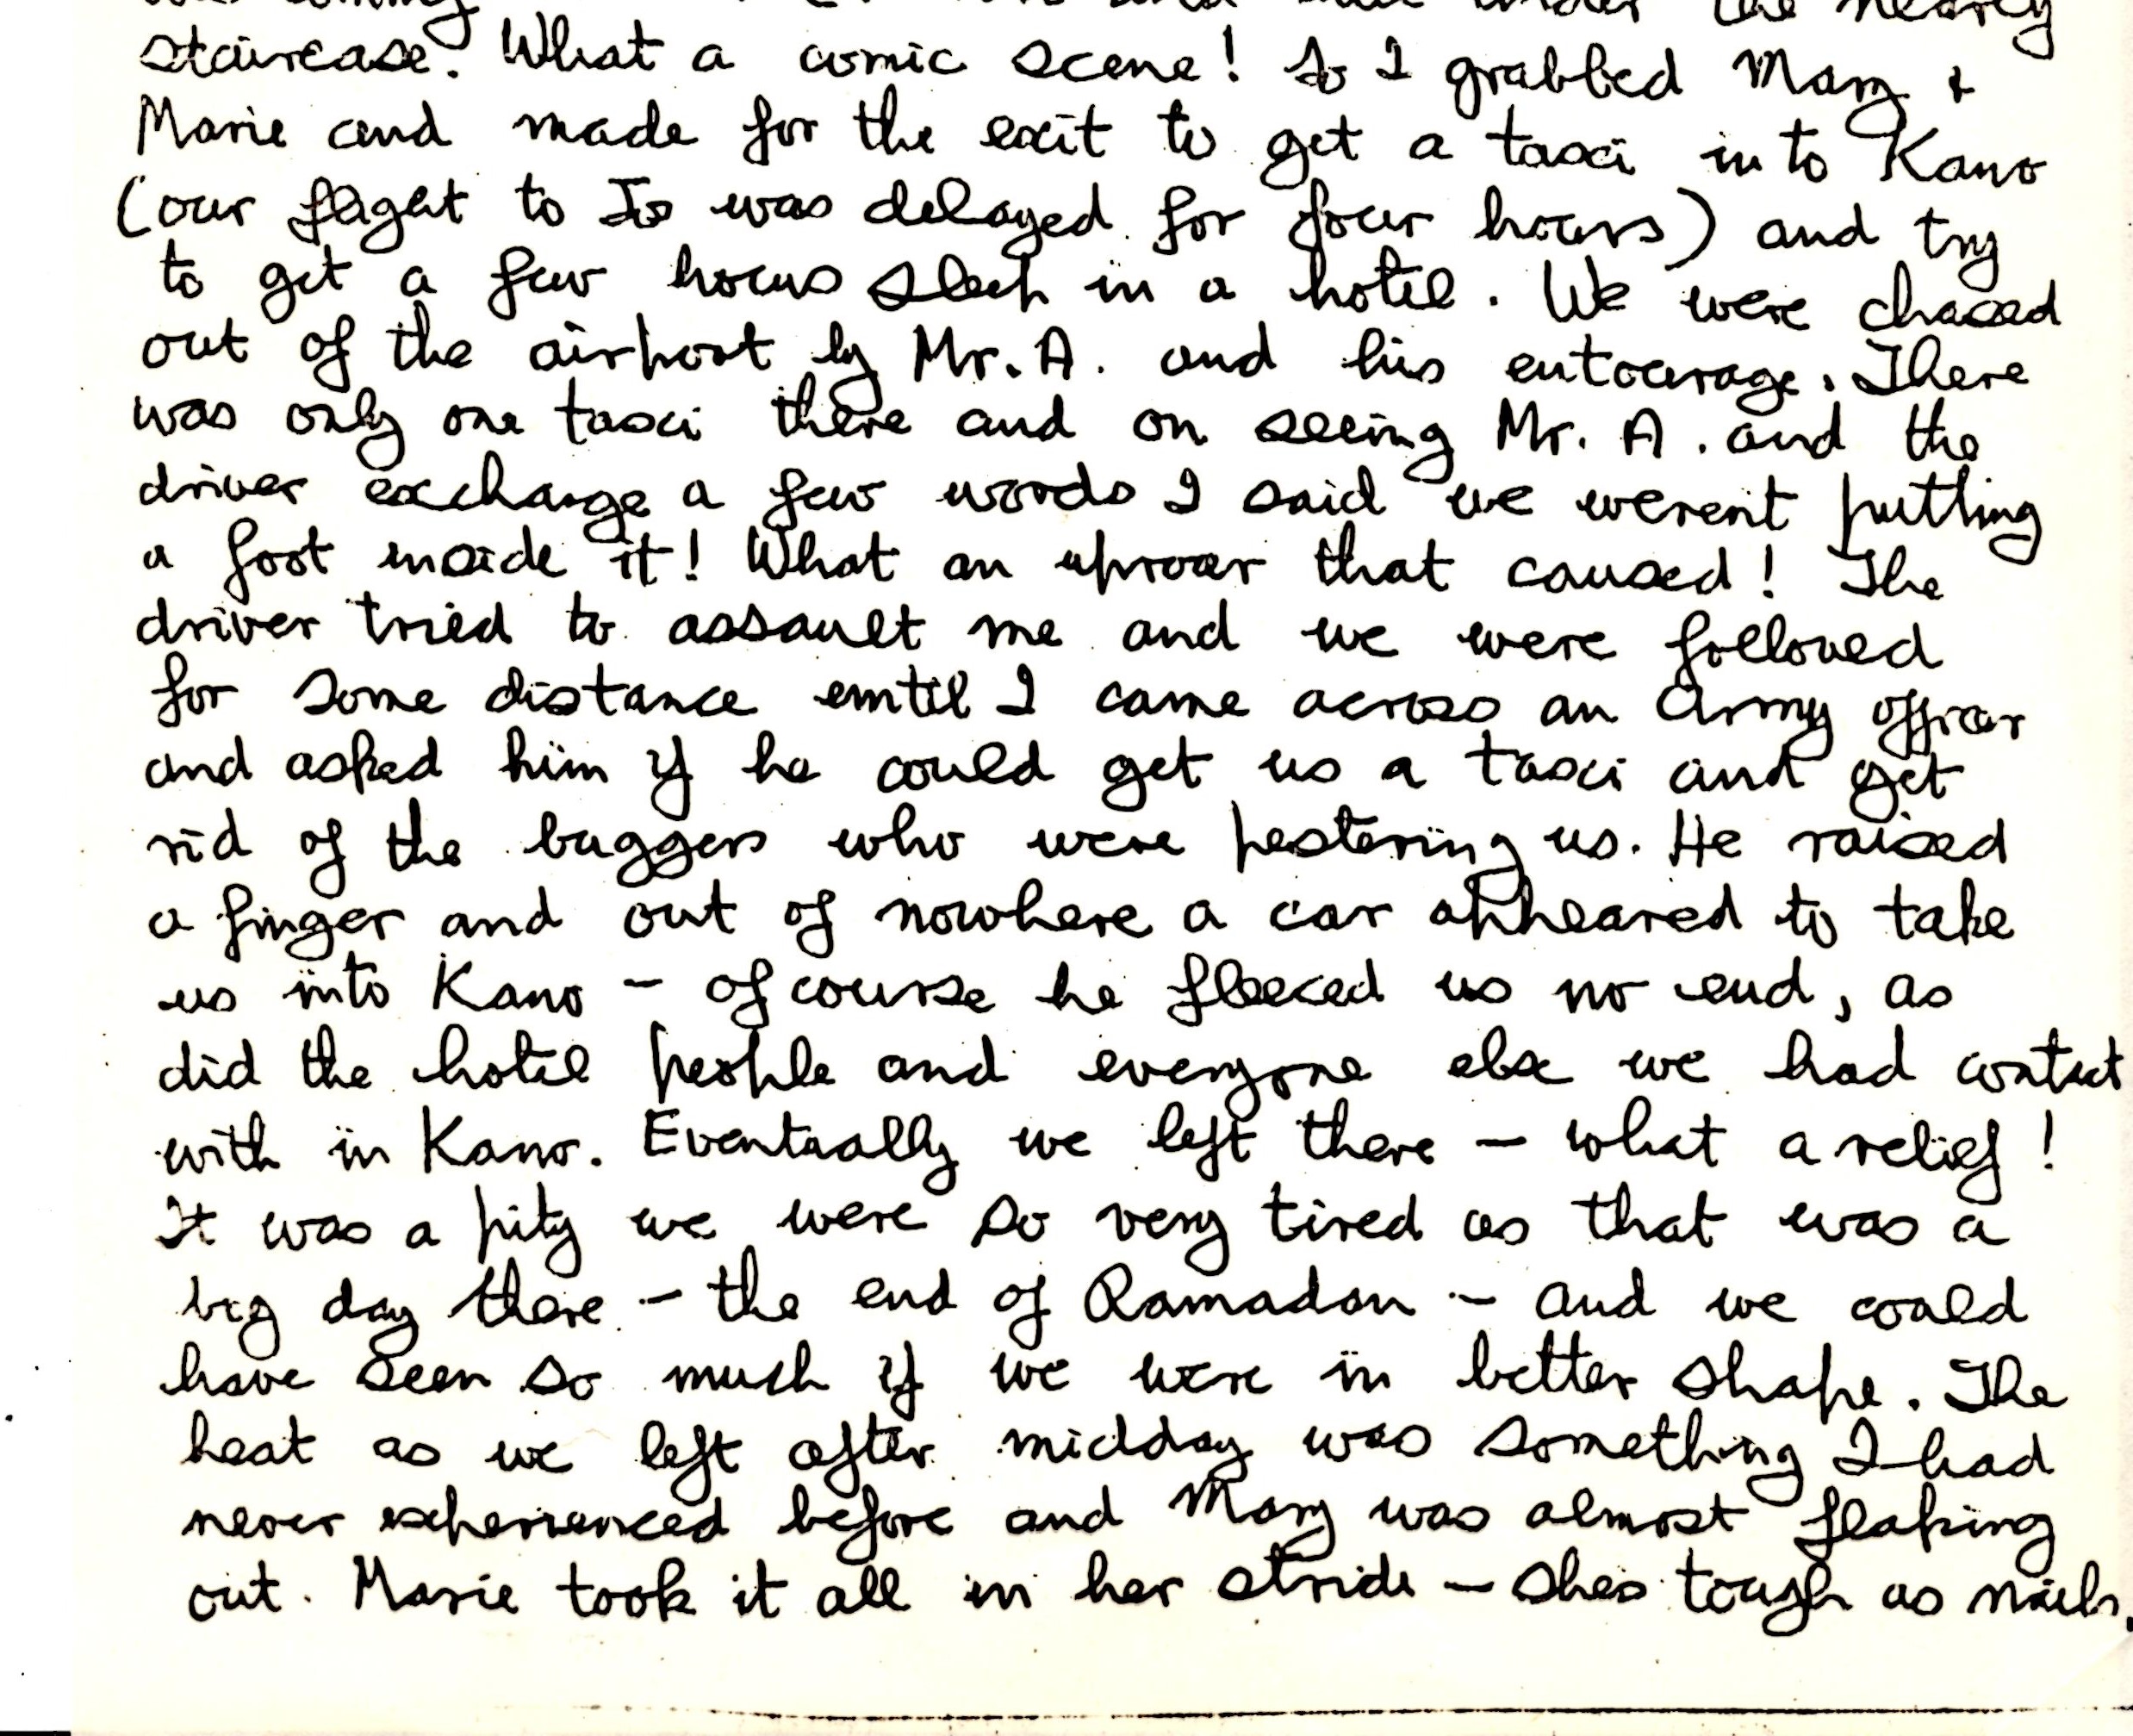 the nearly
staircase. What a comic scene! So I grabbed Mary &
Marie and made for the exit to get a taxi into Kano
(our flight to Jos was delayed for four hours) and try
to get a few hours sleep in a hotel. We were chased
out of the airport by Mr. A. and his entourage. There
was only one taxi there and on seeing Mr. A. and the
driver exchange a few words I said we weren't putting
a foot inside it! What an uproar that caused! The
driver tried to assault me and we were followed
for some distance until I came across an Army officer
and asked him if he could get us a taxi and get
rid of the buggers who were pestering us. He raised
a finger and out of nowhere a car appeared to take
us into Kano - of course he fleeced us no end, as
did the hotel people and everyone else we had contact
with in Kano. Eventually we left there - what a relief!
It was a pity we were so very tired as that was a
big day there - the end of Ramadan - and we could
have seen so much if we were in better shape. The
heat as we left after midday was something I had
never experienced before and Mary was almost flaking
out. Marie took it all in her stride - shes tough as nails.